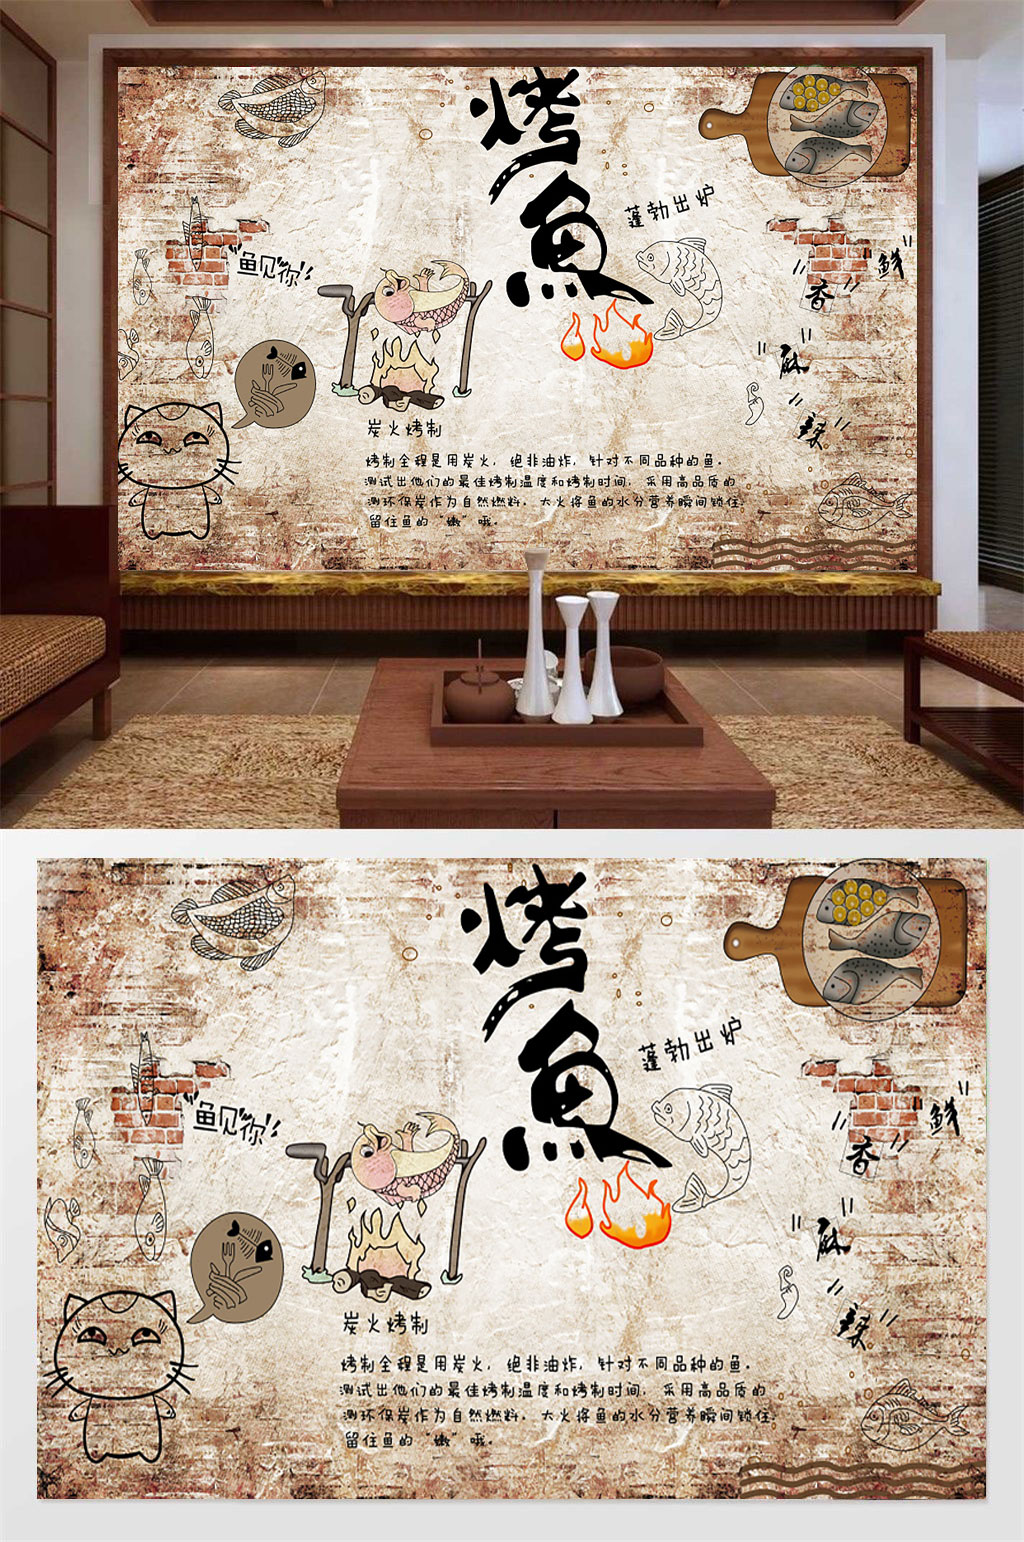 烤
鱼
蓬勃出炉
"鱼见你"
"鲜"
"香"
"麻"
"辣"
炭火烤制
烤制全程是用炭火，绝非油炸，针对不同品种的鱼。
测试出他们的最佳烤制温度和烤制时间，采用高品质的
测环保炭作为自然燃料。大火将鱼的水分营养瞬间锁住。
留住鱼的“嫩”哦。
烤
鱼
蓬勃出炉
"鱼见你"
"鲜"
"香"
"麻"
"辣"
炭火烤制
烤制全程是用炭火，绝非油炸，针对不同品种的鱼。
测试出他们的最佳烤制温度和烤制时间，采用高品质的
测环保炭作为自然燃料。大火将鱼的水分营养瞬间锁住。
留住鱼的“嫩”哦。